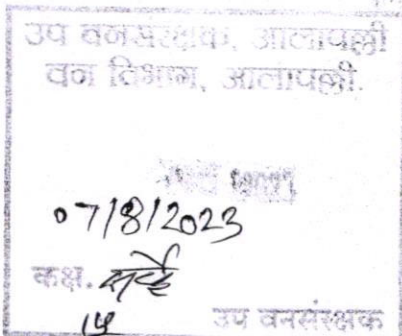 उप वनसंरक्षक, आलापल्ली
वन विभाग, आलापल्ली.
07/8/2023
कक्ष.
उप वनसंरक्षक